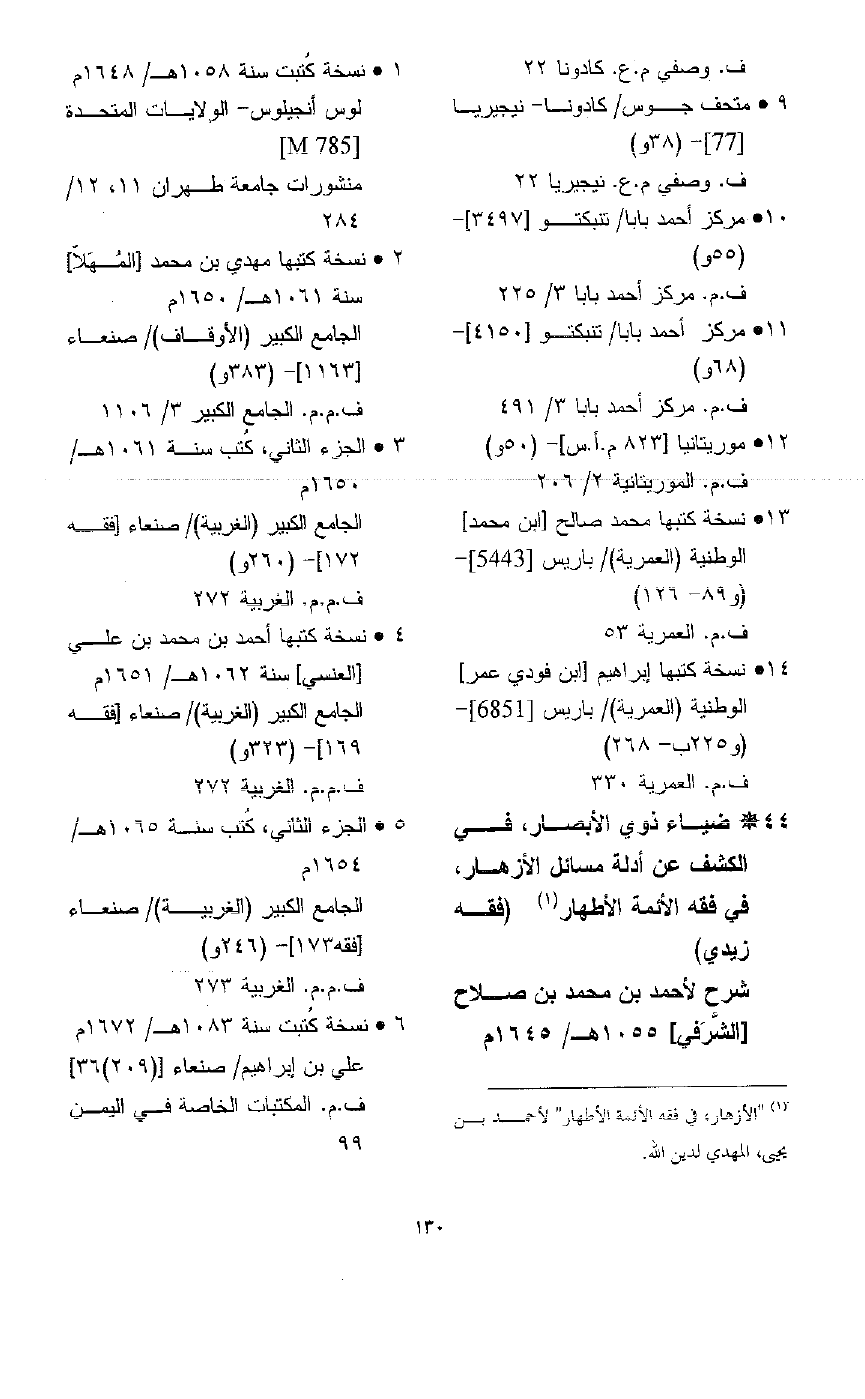 ف. وصفي م.ع. كادونا ٢٢
٩ • متحف جوس/ كادونا- نيجيريا
[77]- (٣٨و)
ف. وصفي م.ع. نيجيريا ٢٢
١٠• مركز أحمد بابا/ تنبكتو [٣٤٩٧]-
(٥٥و)
ف.م. مركز أحمد بابا ٣/ ٢٢٥
١١• مركز أحمد بابا/ تنبكتو [٤١٥٠]-
(٦٨و)
ف.م. مركز أحمد بابا ٣/ ٤٩١
١٢• موريتانيا [٨٢٣ م.أ.س]- (٥٠و)
ف.م. الموريتانية ٢/ ٢٠٦
١٣• نسخة كتبها محمد صالح [ابن محمد]
الوطنية (العمرية)/ باريس [5443]-
(و٨٩- ١٢٦)
ف.م. العمرية ٥٣
١٤• نسخة كتبها إبراهيم [ابن فودي عمر]
الوطنية (العمرية)/ باريس [6851]-
(و٢٢٥ب- ٢٦٨)
ف.م. العمرية ٣٣٠
٤٤* ضياء ذوي الأبصار، في
الكشف عن أدلة مسائل الأزهار،
في فقه الأئمة الأطهار(١) (فقه
زيدي)
شرح لأحمد بن محمد بن صلاح
[الشَّرَفي] ١٠٥٥هـ/ ١٦٤٥م
(١) "الأزهار، في فقه الأئمة الأطهار" لأحمد بن
يحيى، المهدي لدين الله.
١ • نسخة كُتبت سنة ١٠٥٨هـ/ ١٦٤٨م
لوس أنجيلوس- الولايات المتحدة
[M 785]
منشورات جامعة طهران ١١، ١٢/
٢٨٤
٢ • نسخة كتبها مهدي بن محمد [المُهَلاّ]
سنة ١٠٦١هـ/ ١٦٥٠م
الجامع الكبير (الأوقاف)/ صنعاء
[١١٦٣]- (٣٨٣و)
ف.م.م. الجامع الكبير ٣/ ١١٠٦
٣ • الجزء الثاني، كُتب سنة ١٠٦١هـ/
١٦٥٠م
الجامع الكبير (الغربية)/ صنعاء [فقه
١٧٢]- (٢٦٠و)
ف.م.م. الغربية ٢٧٢
٤ • نسخة كتبها أحمد بن محمد بن علي
[العنسي] سنة ١٠٦٢هـ/ ١٦٥١م
الجامع الكبير (الغربية)/ صنعاء [فقه
١٦٩]- (٣٢٣و)
ف.م.م. الغربية ٢٧٢
٥ • الجزء الثاني، كُتب سنة ١٠٦٥هـ/
١٦٥٤م
الجامع الكبير (الغربية)/ صنعاء
[فقه١٧٣]- (٢٤٦و)
ف.م.م. الغربية ٢٧٣
٦ • نسخة كُتبت سنة ١٠٨٣هـ/ ١٦٧٢م
علي بن إبراهيم/ صنعاء [(٢٠٩)٣٦]
ف.م. المكتبات الخاصة في اليمن
٩٩
١٣٠